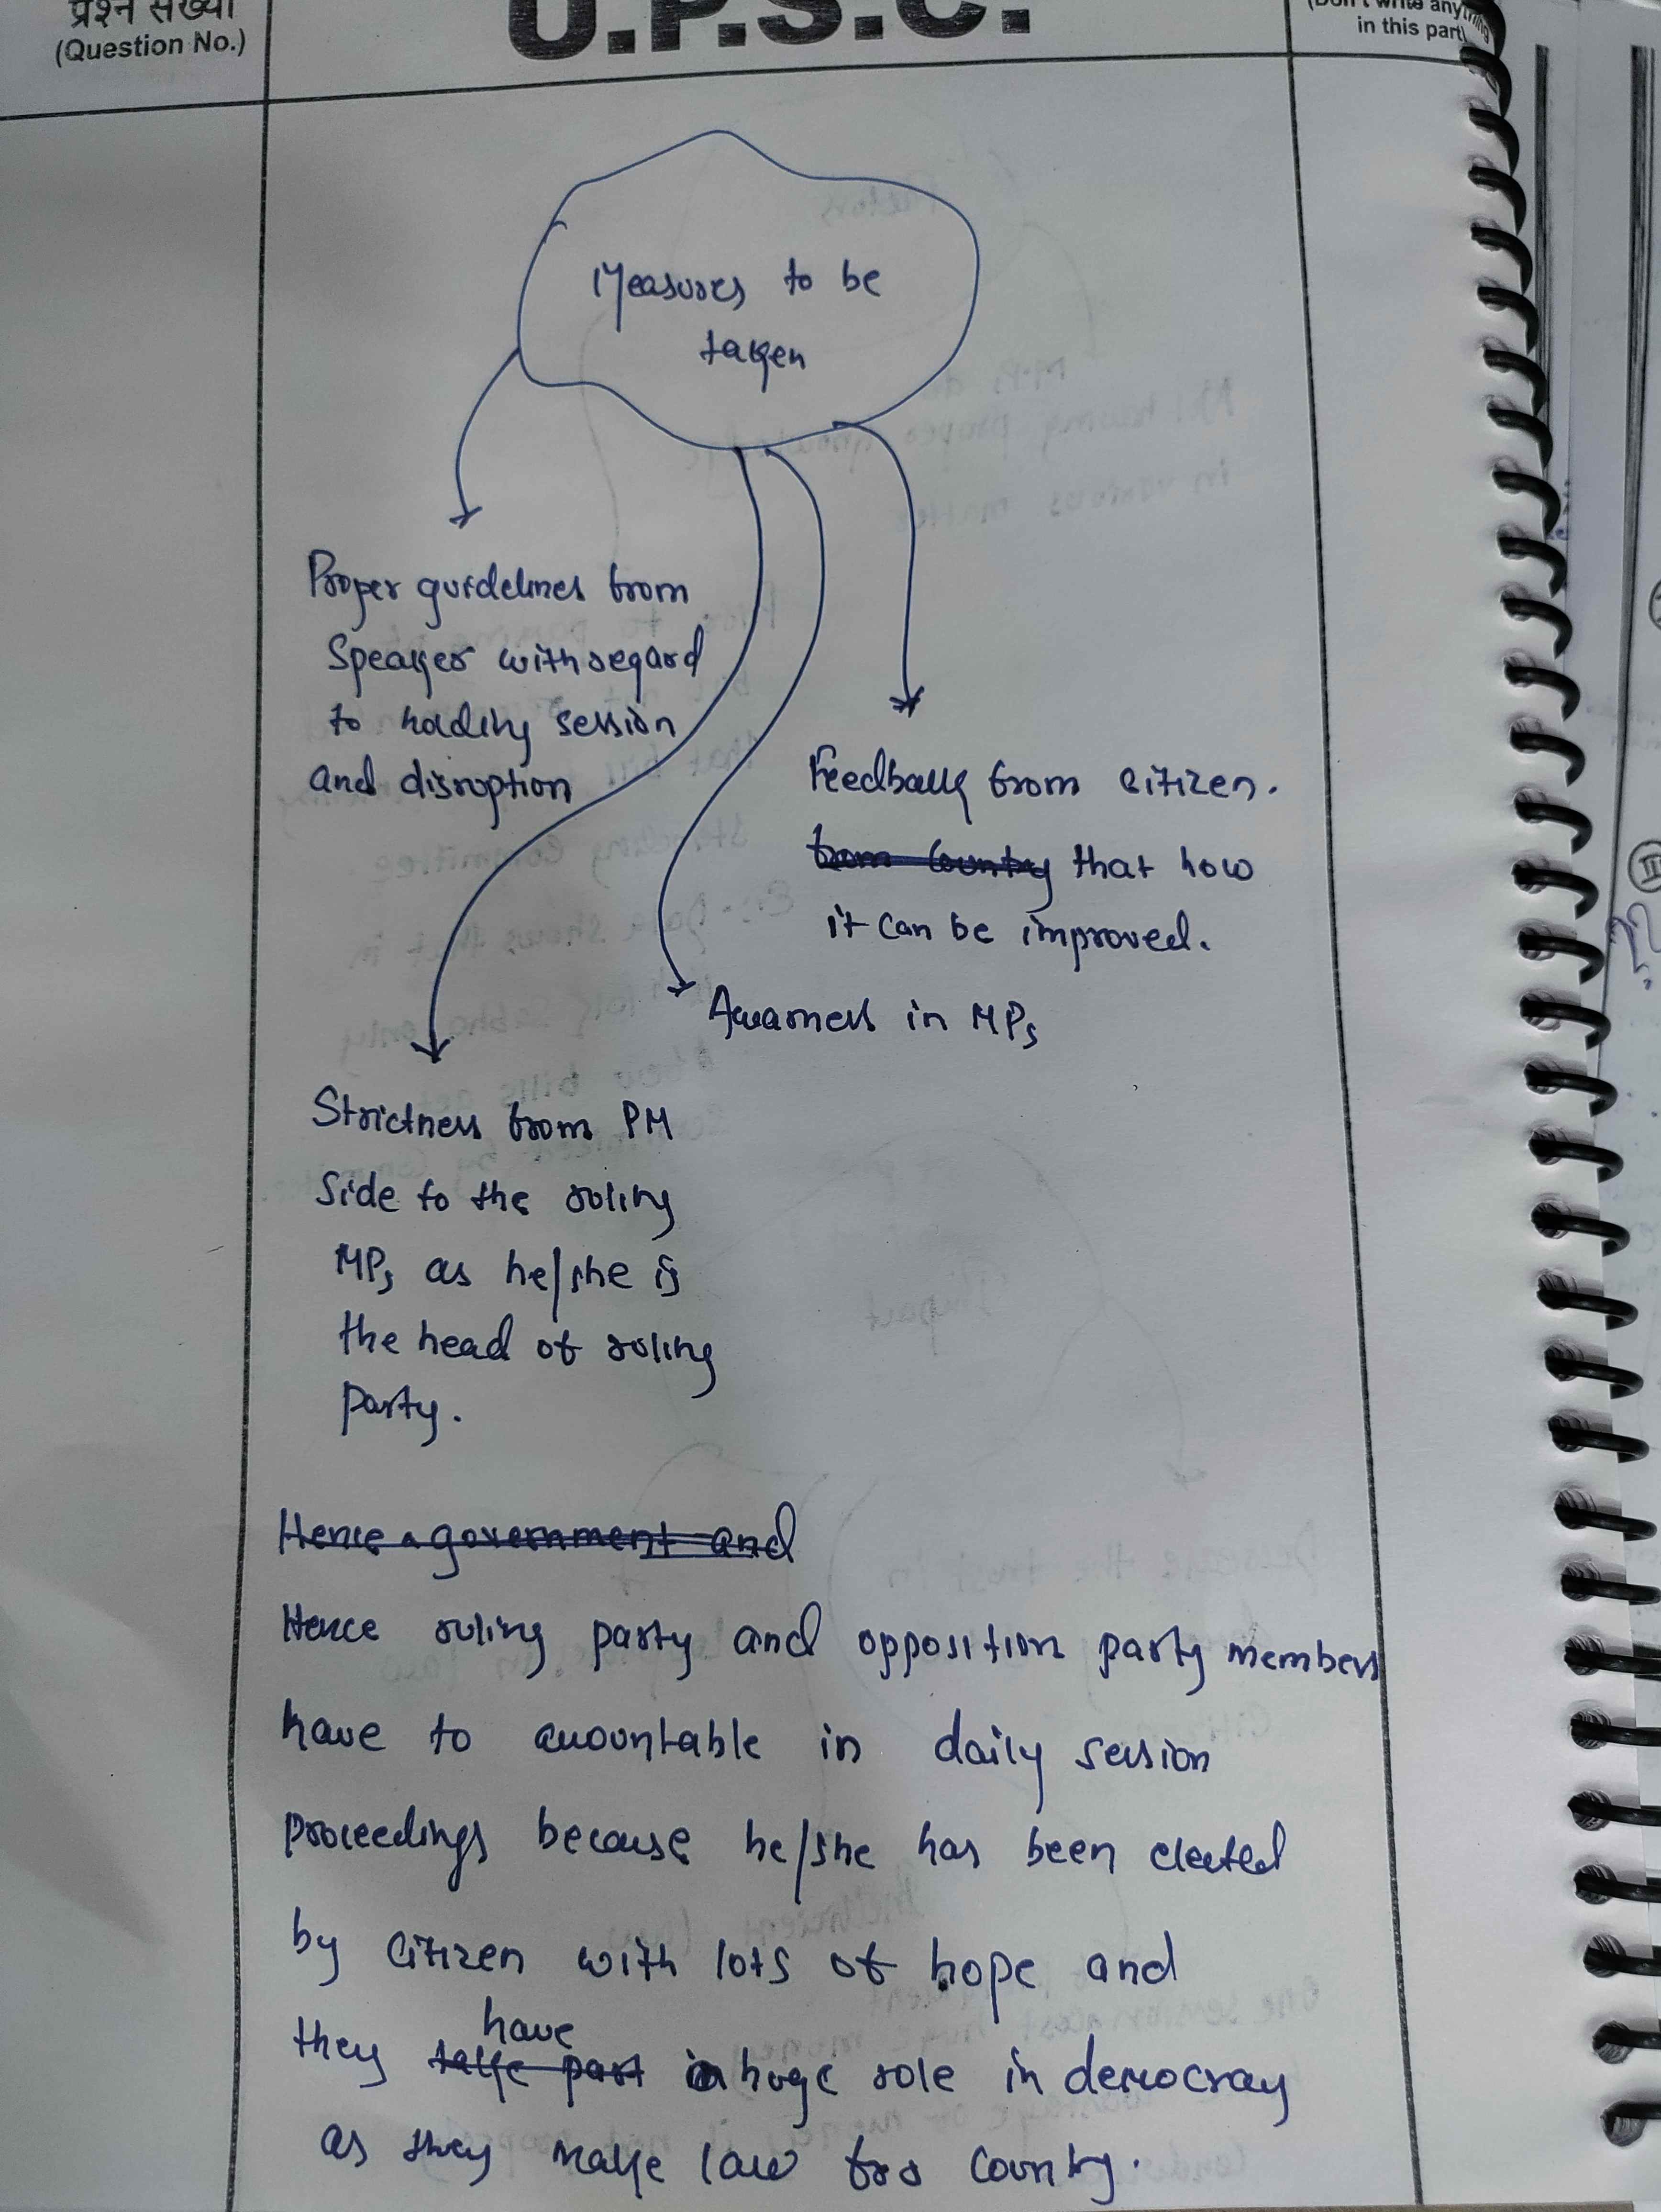 प्रश्न संख्या
(Question No.)
U.P.S.C.
(Don't write anything
in this part)
Measures to be
taken
Proper guidelines from
Speaker with regard
to holding session
and disruption
Feedback from citizen.
from country that how
it can be improved.
Awarness in MPs
Strictness from PM
Side to the ruling
MPs as he/she is
the head of ruling
party.
Hence government and
Hence ruling party and opposition party members
have to accountable in daily session
proceedings because he/she has been elected
by citizen with lots of hope and
have
they take part in huge role in democracy
as they make law for country.